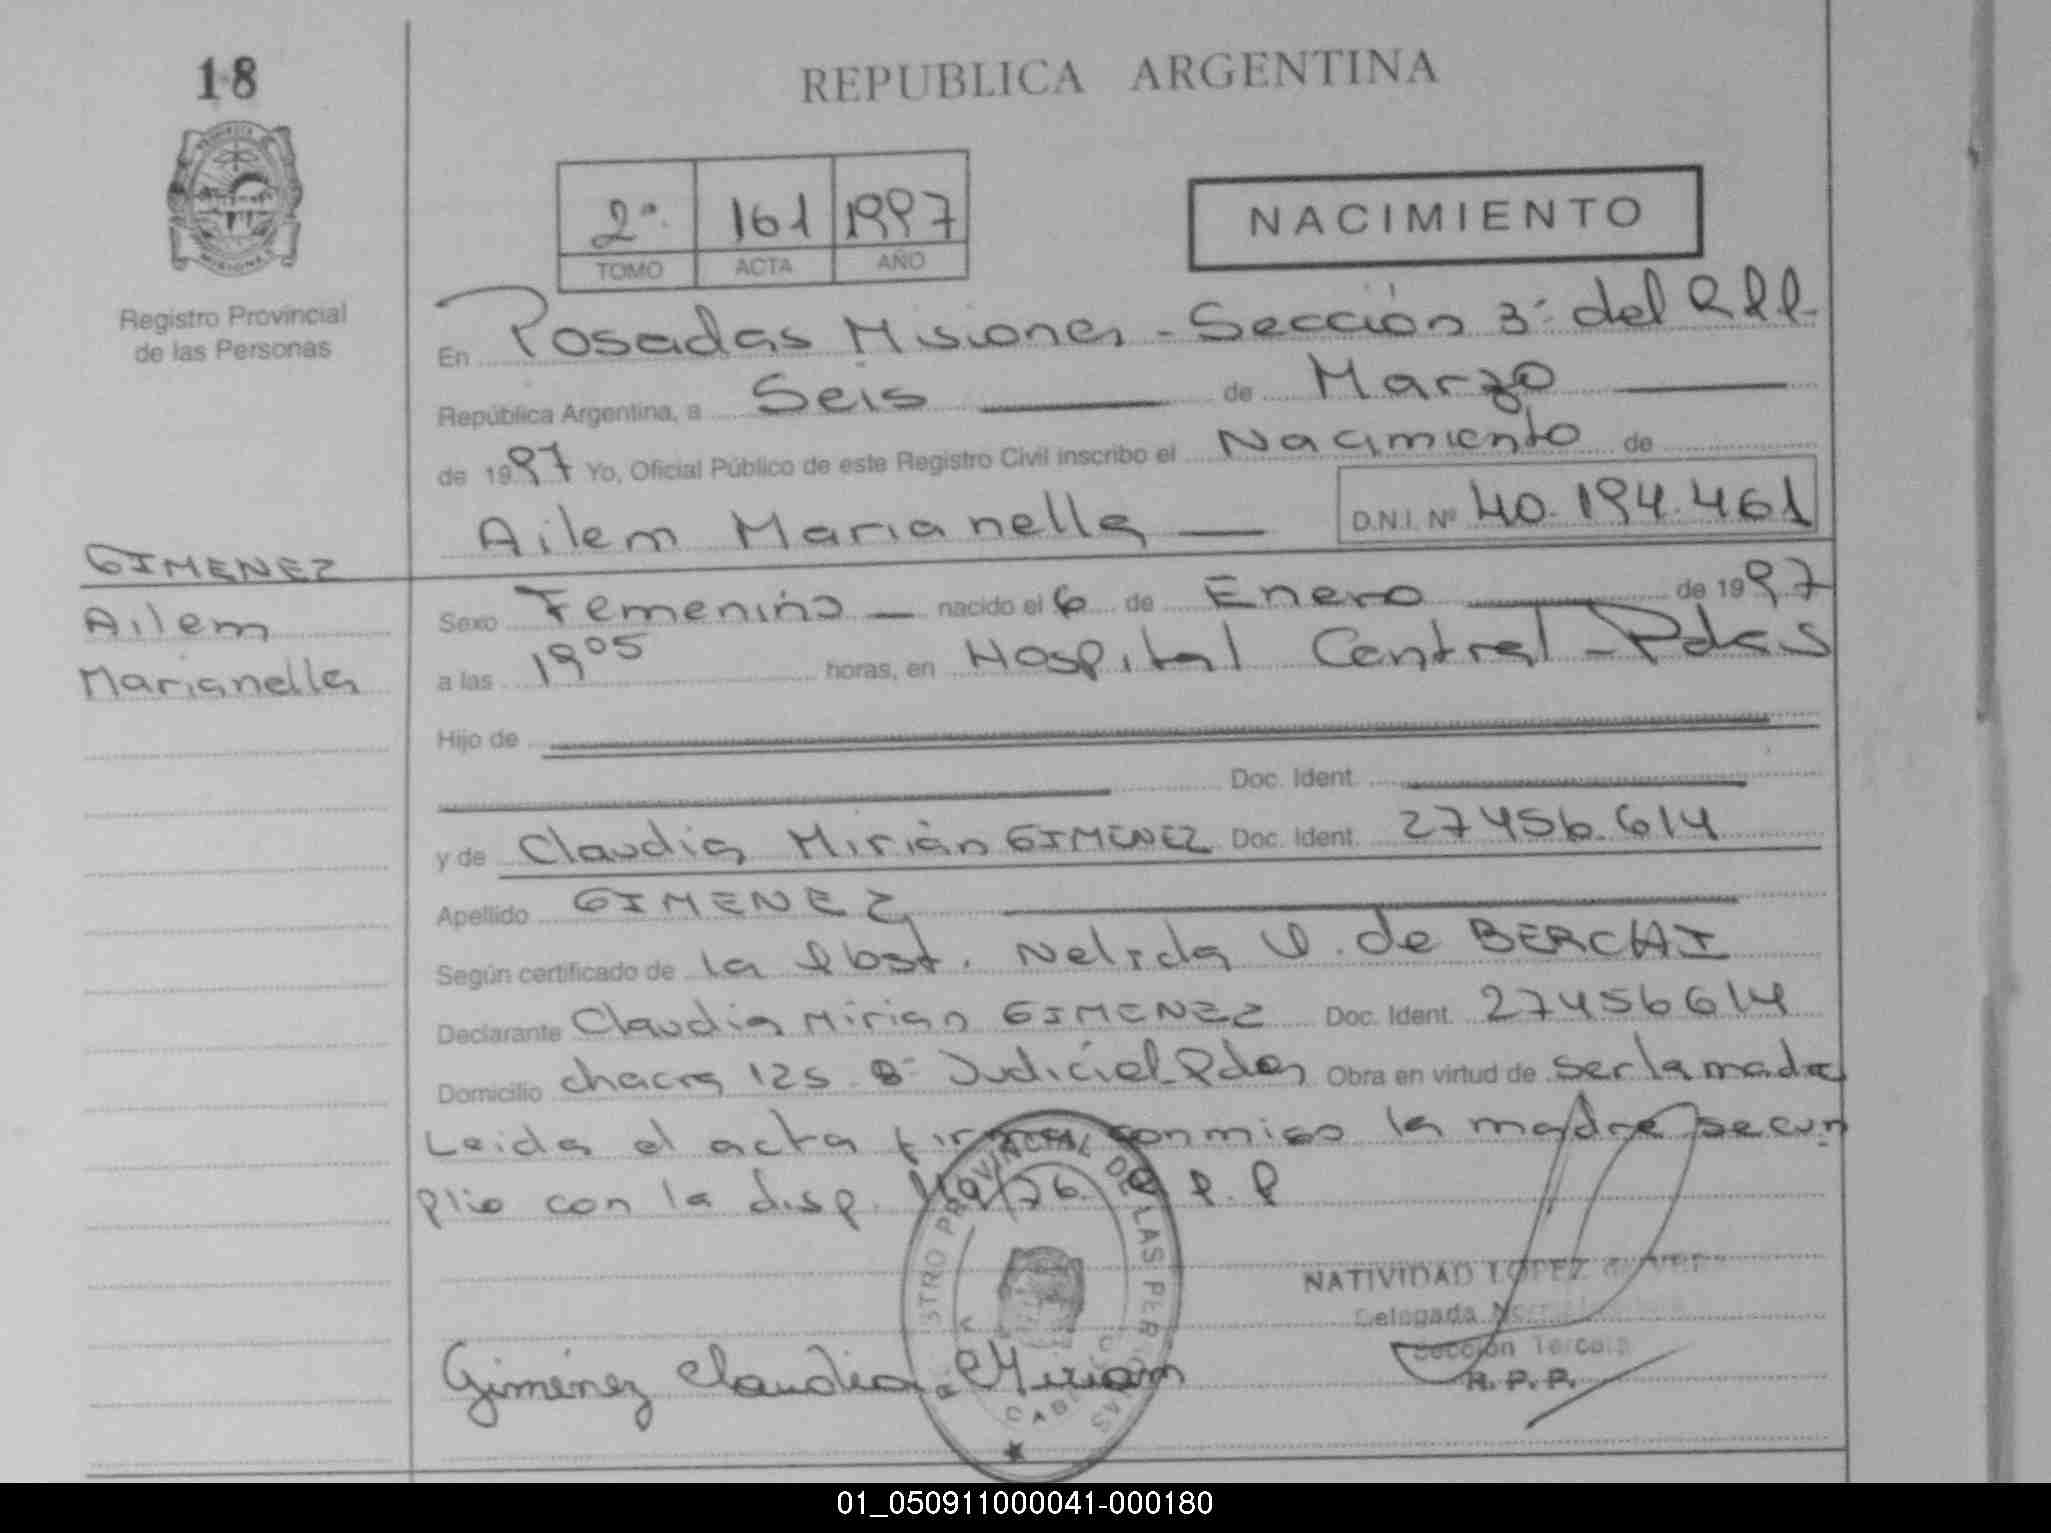 18
REPUBLICA ARGENTINA
2º 161 1997
TOMO ACTA AÑO
NACIMIENTO
Registro Provincial
de las Personas
En Posadas Misiones - Sección 3ª del R.P.P.
República Argentina, a Seis de Marzo
de 1997 Yo, Oficial Público de este Registro Civil inscribo el Nacimiento de
Ailem Marianella D.N.I. Nº 40.194.461
GIMENEZ
Ailem
Marianella
Sexo Femenino nacido el 6 de Enero de 1997
a las 19 05 horas, en Hospital Central - Pdas
Hijo de
Doc. Ident.
y de Claudia Mirián GIMENEZ Doc. Ident. 27456.614
Apellido GIMENEZ
Según certificado de la Obst. Nelida de BERCHI
Declarante Claudia Mirian GIMENEZ Doc. Ident. 27456614
Domicilio chacra 125 8ª Judicial Pdas Obra en virtud de ser la madre
Leida el acta firma conmigo la madre se cum
plio con la disp. R.P.P
REGISTRO PROVINCIAL DE LAS PERSONAS
NATIVIDAD LOPEZ
Delegada
Sección Tercera
R.P.P.
Giménez Claudia Miriam
01_050911000041-000180